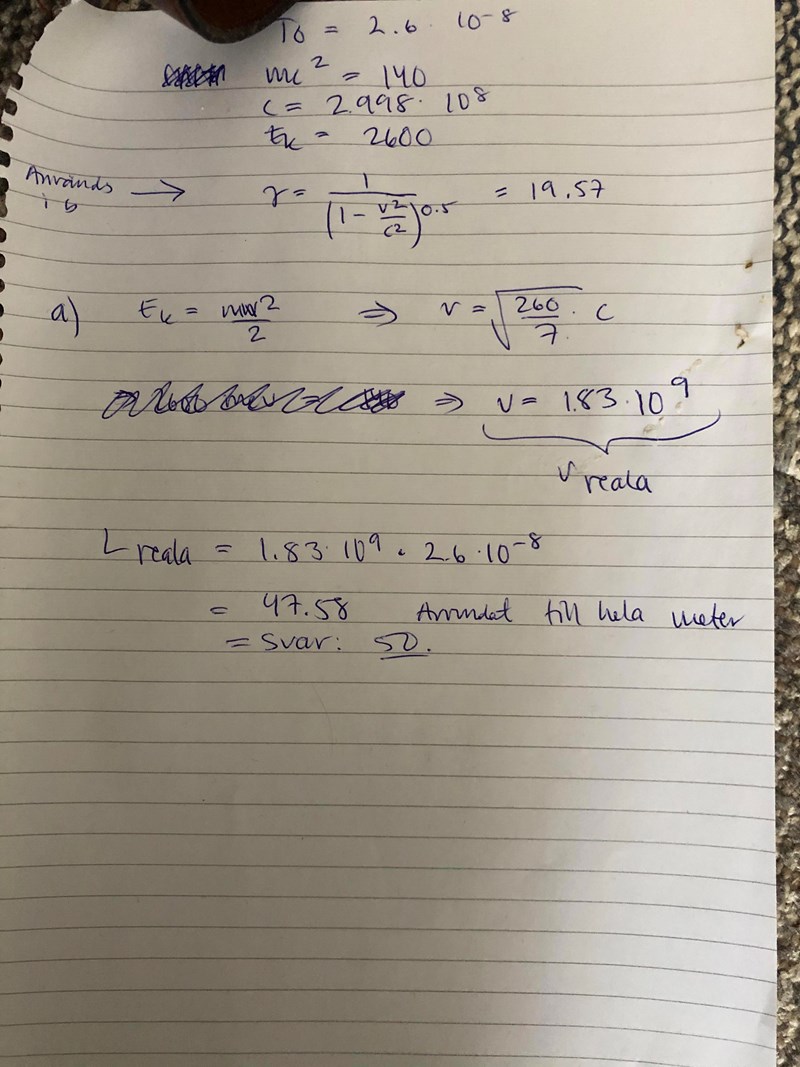 T0 = 2.6 · 10^-8
mc^2 = 140
c = 2.998 · 10^8
Ek = 2600
Används i b → γ = 1 / (1 - v^2/c^2)^0.5 = 19.57
a) Ek = mv^2/2 ⇒ v = √(260/7) · c
⇒ v = 1.83 · 10^9
v reala
L reala = 1.83 · 10^9 · 2.6 · 10^-8
= 47.58 Avrundat till hela meter
= Svar: 50.